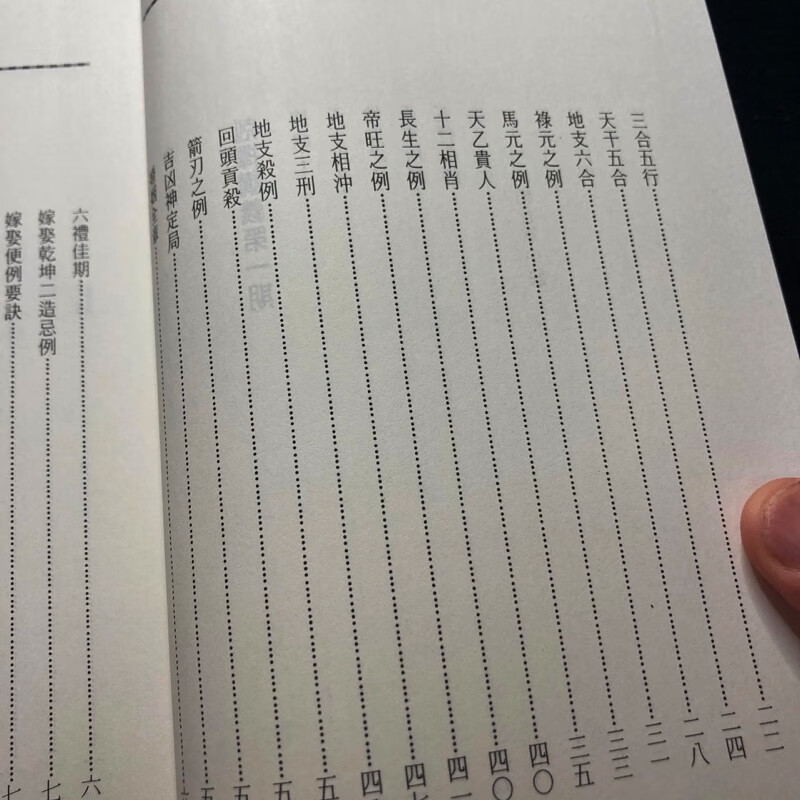 三合五行 二二
天干五合 二四
地支六合 二八
祿元之例 三一
馬元之例 三三
天乙貴人 三五
十二相肖 四〇
長生之例 四〇
帝旺之例 四
地支相沖 四
地支三刑 四
地支殺例 五
回頭貢殺 五
箭刃之例 五
吉凶神定局 五
六禮佳期 六
嫁娶乾坤二造忌例 七
嫁娶便例要訣 七